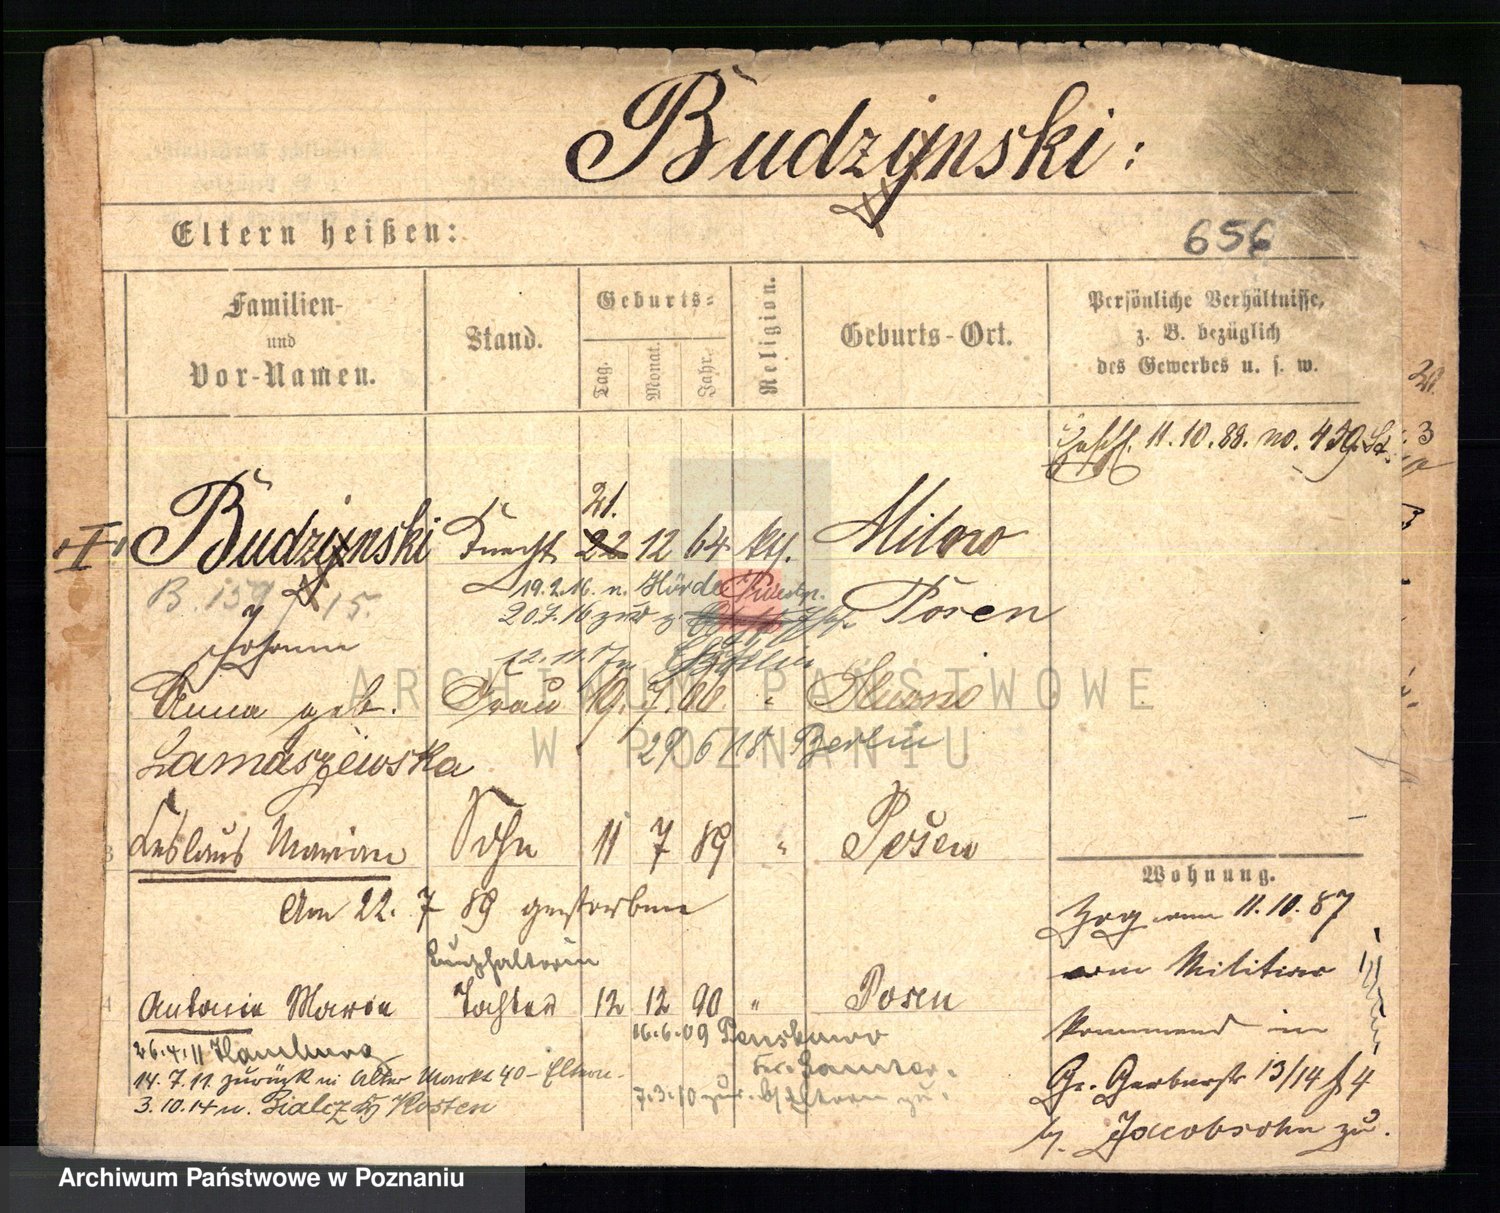 Budzynski:
Eltern heißen:
656
Familien-
und
Vor-Namen.
Stand.
Geburts-
Tag.
Monat.
Jahr.
Religion.
Geburts-Ort.
Persönliche Verhältnisse,
z. B. bezüglich
des Gewerbes u. s. w.
11.10.88. no. 439
I
Budzynski Knecht 21. 22 12 64 kth. Milowo
B. 159/15.
Johann
19.2.16. n. Hörde
20.7.16 zur
Posen
12.11.17 Berlin
Anna geb. Frau 19. 7. 66 "
Lamaszewska
29/6 18 Berlin
Ceslaus Marian Sohn 11 7 89 " Posen
Am 22. 7 89 gestorben
Buchhalterin
Antonie Marie Tochter 12 12 90 " Posen
16.6.09
26.4.11 Hamburg
14.7.11 zurück n. Alter Markt 40 - Eltern.
7.3.10 zur. b/Eltern zu.
3.10.14 n. Kosten
Wohnung.
Zog am 11.10.87
vom Militär
kommend in
Gr. Gerberstr 13/14
bj. Jacobsohn zu.
ARCHIWUM PAŃSTWOWE
W POZNANIU
Archiwum Państwowe w Poznaniu